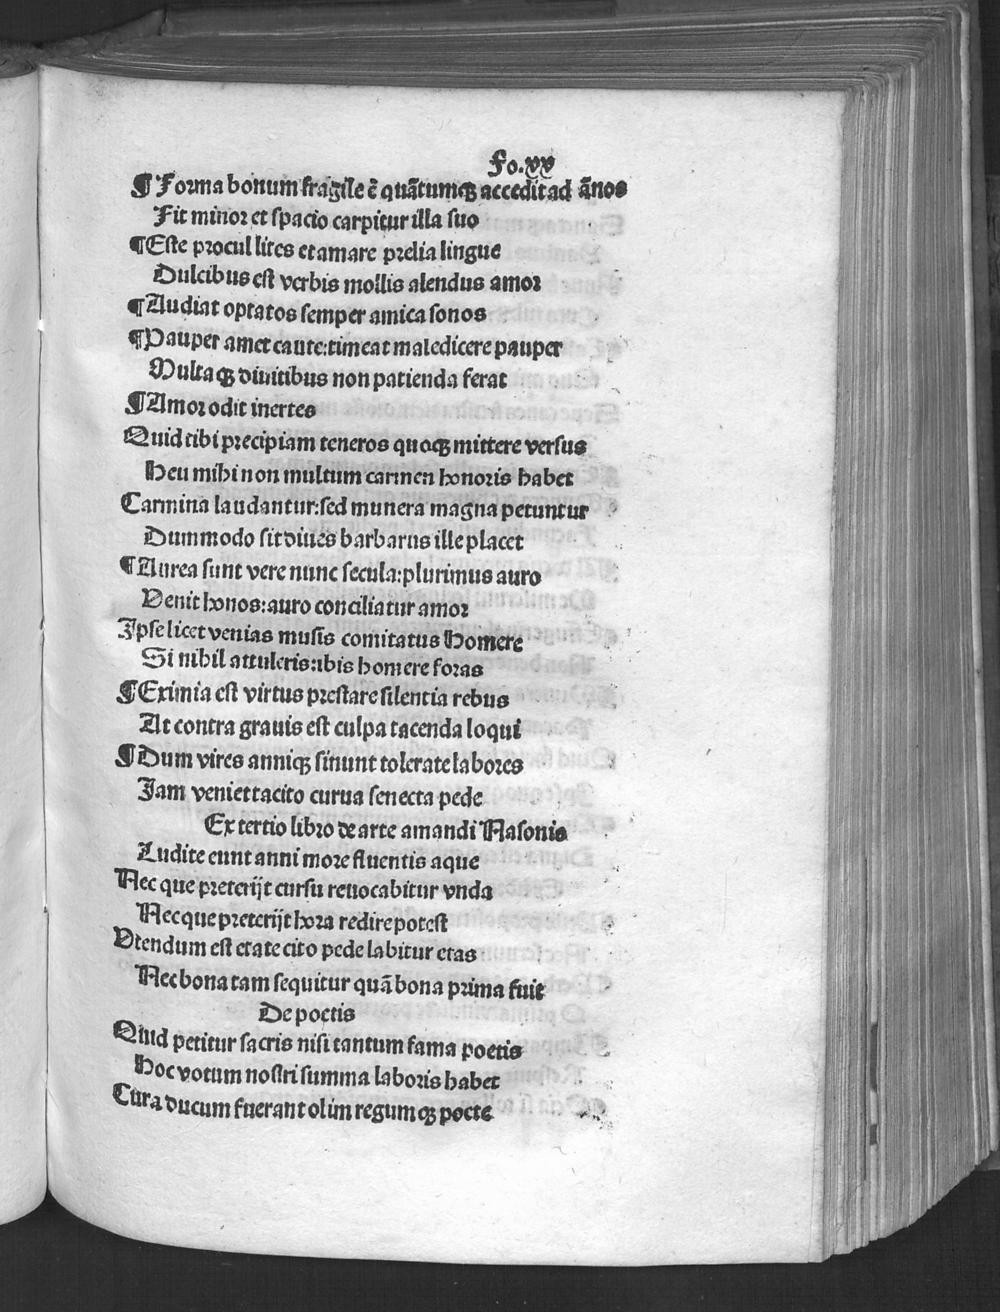 Fo.xx
¶ Forma bonum fragile ē quātumqꝫ accedit ad ānos
Fit minor et spacio carpitur illa suo
¶ Este procul lites et amare prelia lingue
Dulcibus est verbis mollis alendus amor
¶ Audiat optatos semper amica sonos
¶ Pauper amet caute: timeat maledicere pauper
Multaqꝫ diuitibus non patienda ferat
¶ Amor odit inertes
Quid tibi precipiam teneros quoqꝫ mittere versus
Heu mihi non multum carmen honoris habet
Carmina laudantur: sed munera magna petuntur
Dummodo sit diues barbarus ille placet
¶ Aurea sunt vere nunc secula: plurimus auro
Venit honos: auro conciliatur amor
Ipse licet venias musis comitatus Homere
Si nihil attuleris: ibis homere foras
¶ Eximia est virtus prestare silentia rebus
At contra grauis est culpa tacenda loqui
¶ Dum vires anniqꝫ sinunt tolerate labores
Iam veniet tacito curua senecta pede
Ex tertio libro de arte amandi Nasonis
Ludite eunt anni more fluentis aque
Nec que preterijt cursu reuocabitur vnda
Nec que preterijt hora redire potest
Vtendum est etate cito pede labitur etas
Nec bona tam sequitur quā bona prima fuit
De poetis
Quid petitur sacris nisi tantum fama poetis
Hoc votum nostri summa laboris habet
Cura ducum fuerant olim regumqꝫ poete